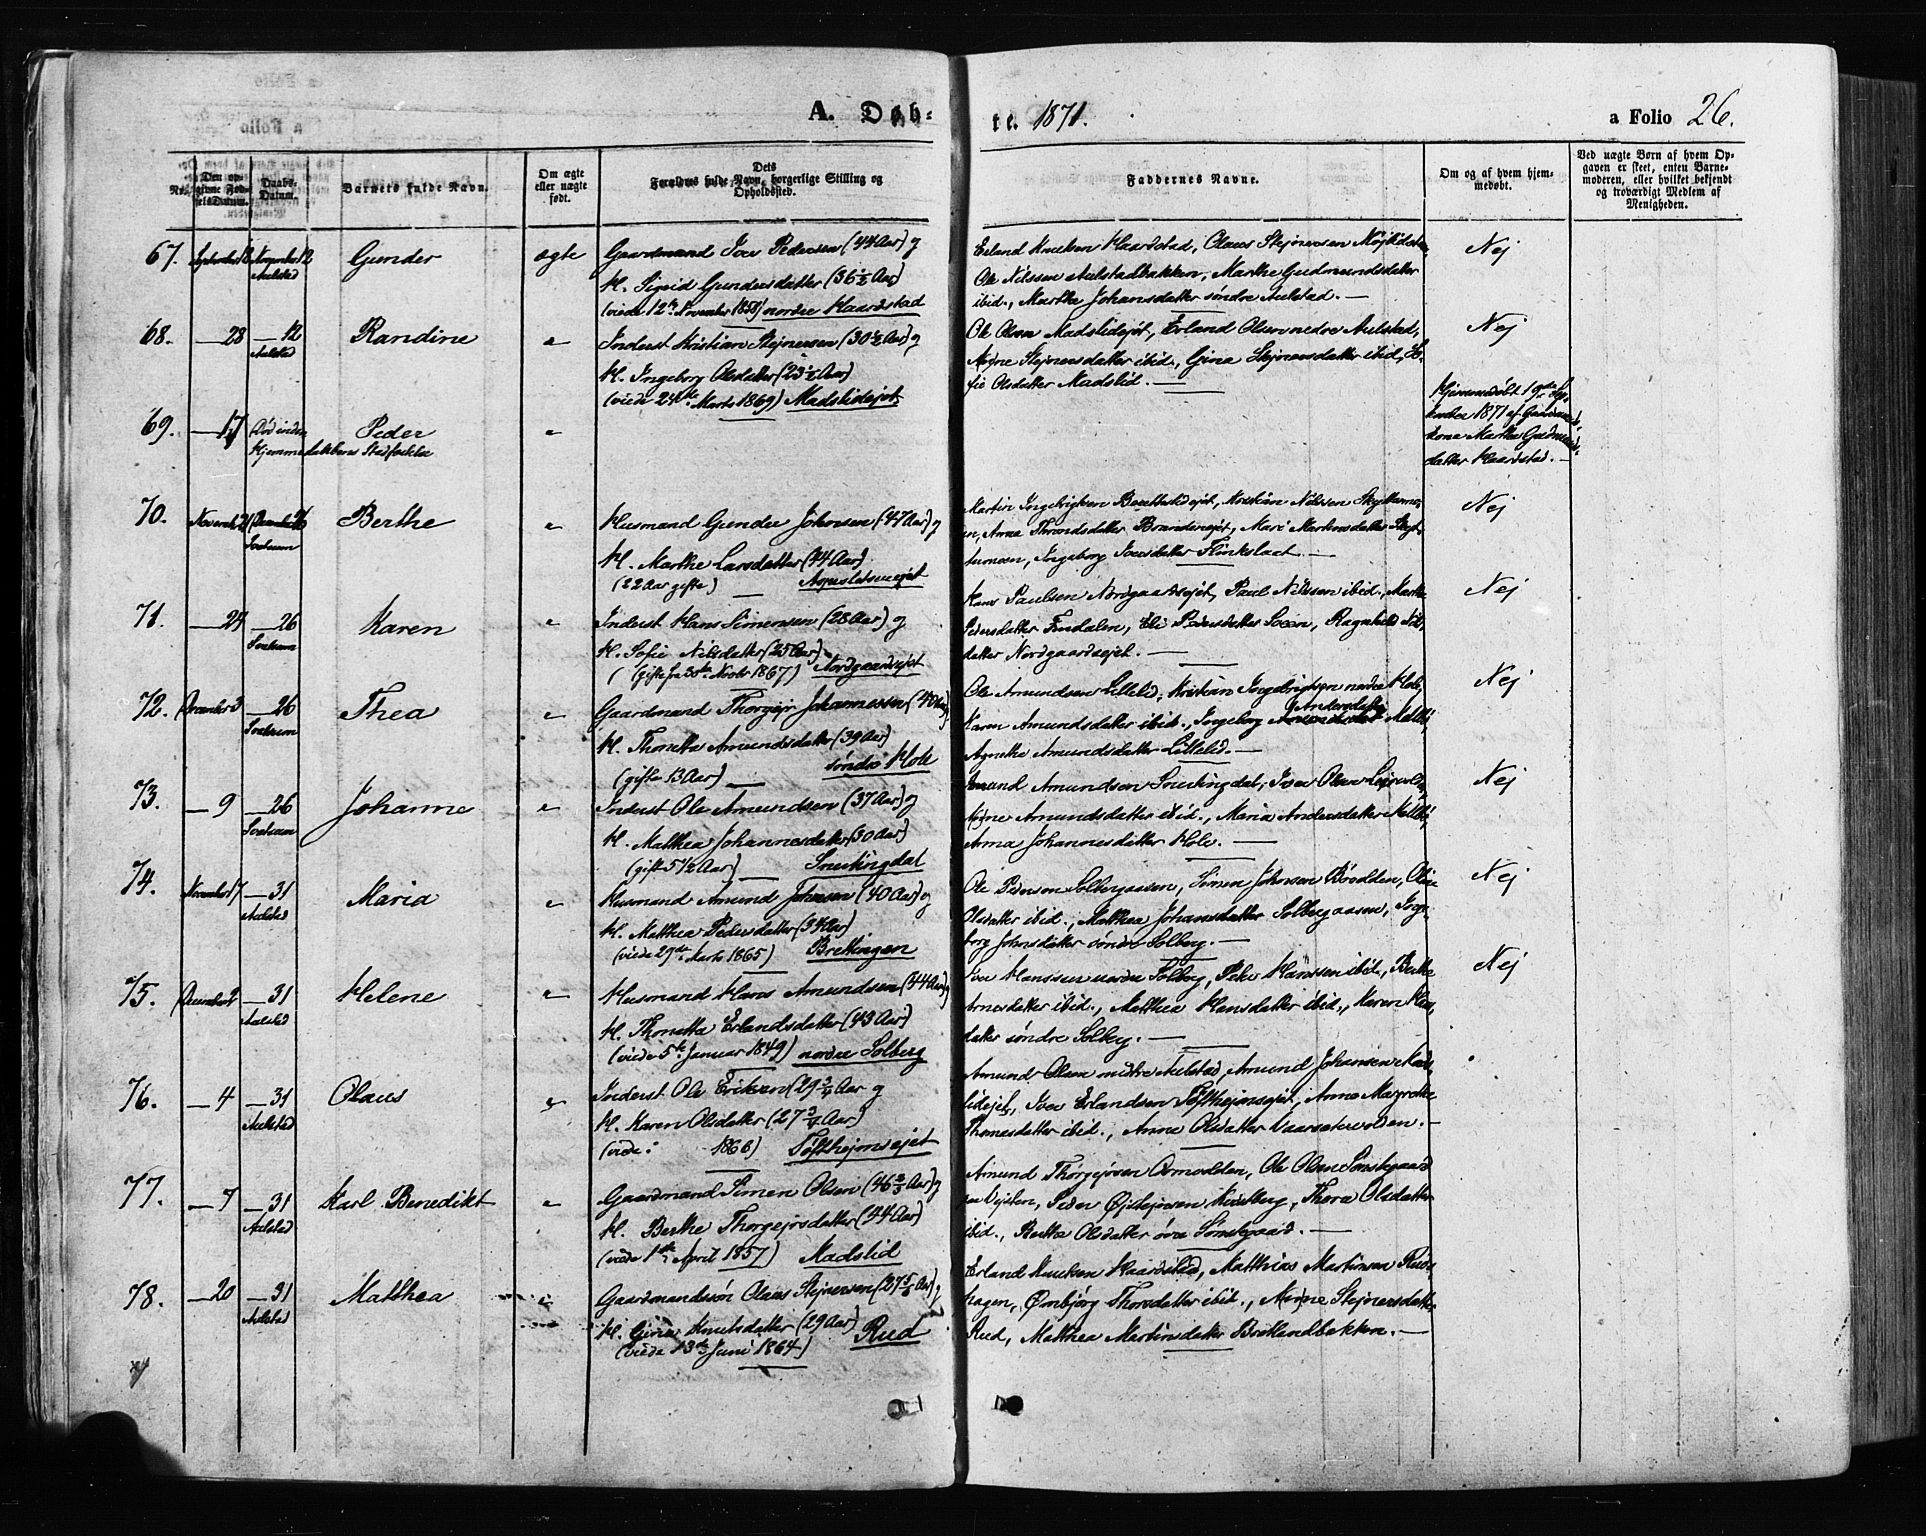 A. Døb-
te. 1871.
a Folio 26.
No.
Den op-
givne Fød-
selsDatum.
Daabs-
Datum.
Barnets fulde Navn.
Om ægte
eller uægte
født.
Dets
Forældres fulde Navn, borgerlige Stilling og
Opholdssted.
Faddernes Navne.
Om og af hvem hjem-
medøbt.
Ved uægte Børn af hvem Op-
gaven er skeet, enten Barne-
moderen, eller hvilket bekjendt
og troværdigt Medlem af
Menigheden.
67. September 18 November 12 Gunder ægte Gaardmand Iver Pedersen (44 Aar) og
Aulstad
H. Sigrid Gundersdatter (36½ Aar)
(viede 12te November 1858) nordre Haardstad
Erland Knutsen Haardstad, Olaus Stejnersen
Ole Nilssen Aulstadbakken, Marthe Gudmundsdatter
ibid., Marthe Johansdatter søndre Aulstad. —
Nej
68. — 28 — 12 Randine " Inderst Kristian Stejnersen (30½ Aar) og
Aulstad
H. Ingeborg Olsdatter (23½ Aar)
(viede 24de Marts 1869) Madslidejet
Ole Olsen Madslidejet, Erland Olsen nedre Aulstad,
Stejnersdatter ibid., Gina Stejnersdatter ibid., So-
fie Olsdatter Madslid. —
Nej
69. — 17 Død inden Peder "
Hjemmedaabens Stadfæstelse
Hjemmedøbt 19de Sep-
tember 1871 af Gaardmands-
kone Marthe Gudmunds-
datter Haardstad. —
70. November 21 December 26 Berthe " Husmand Gunder Johnsen (47 Aar) og
H. Marthe Larsdatter (44 Aar)
(22 Aar gifte) —
Martin Ingebrigtsen, Kristian Nilssen
en, Anne Throndsdatter, Mari Martinsdatter
Ingeborg Iversdatter —
Nej
71. — 24 — 26 Karen " Inderst Hans Simensen (28 Aar) og
H. Sofie Nilsdatter (25 Aar)
(gifte fra 30te Novbr 1867) Nordgaardsejet
Hans Paulsen Nordgaardsejet, Paul Nilssen ibid., Marthe
Pedersdatter, Eli Pedersdatter Soen, Ragnhild Nils-
datter Nordgaardsejet. —
Nej
72. December 3 — 26 Thea " Gaardmand Thorgejr Johannessen (40 Aar) og
H. Thonette Amundsdatter (39 Aar)
(gifte 13 Aar) — søndre Hole
Ole Amundsen Lillelid, Kristian Ingebrigtsen nordre Hole,
Karen Amundsdatter ibid., Ingeborg Andersdatter
Agnethe Amundsdatter Lillelid. —
Nej
73. — 9 — 26 Johanne " Inderst Ole Amundsen (37 Aar) og
H. Matthea Johannesdatter (30 Aar)
(gift 5½ Aar) — Snertingdal
Amund Amundsen Snertingdal, Iver Olsen
Amundsdatter ibid., Maria Andersdatter
Anna Johannesdatter Hole. —
Nej
74. November 17 — 31 Maria " Husmand Amund Johnsen (40 Aar) og
Aulstad
H. Matthea Pedersdatter (34 Aar)
(viede 29de Marts 1865) Brettingen
Ole Pedersen Solbergaasen, Simen Johnsen
Olsdatter ibid., Matthea Johansdatter Solbergaasen, Inge-
borg Johnsdatter søndre Solberg. —
Nej
75. December 2 — 31 Helene " Husmand Hans Amundsen (44 Aar) og
Aulstad
H. Thonette Erlandsdatter (43 Aar)
(viede 5te Januar 1849) nordre Solberg
Iver Hanssen nordre Solberg, Peder Hanssen ibid., Berthe
Arnesdatter ibid., Matthea Hansdatter ibid., Karen Hans-
datter søndre Solberg. —
Nej
76. — 4 — 31 Olaus " Inderst Ole Eriksen (29¾ Aar) og
Aulstad
H. Karen Olsdatter (27¾ Aar)
(viede: 1866) Tofthejmsejet
Amund Olsen midtre Aulstad, Amund Johansen Mads-
lidejet, Iver Erlandsen Tofthejmsejet, Anne Margrethe
Thomasdatter ibid., Anne Olsdatter Vaarsætervolden. —
77. — 7 — 31 Karl Benedikt " Gaardmand Simen Olsen (46⅔ Aar) og
Aulstad
H. Berthe Thorgejrsdatter (44 Aar)
(viede 1ste April 1857) Madslid
Amund Thorgejrsen, Ole Olsen
Peder, Thora Olsdatter
ibid., Berthe Olsdatter øvre. —
78. — 20 — 31 Matthea " Gaardmandssøn Olaus Stejnersen (27 Aar) og
Aulstad
H. Gina Knutsdatter (29 Aar) Rud
(viede 13de Juni 1864)
Erland Knutsen Haardstad, Matthias Martinsen Ruds-
hagen, Ømbjørg Thorsdatter ibid., Stejnersdatter
Rud, Matthea Martinsdatter Bratlandbakken. —